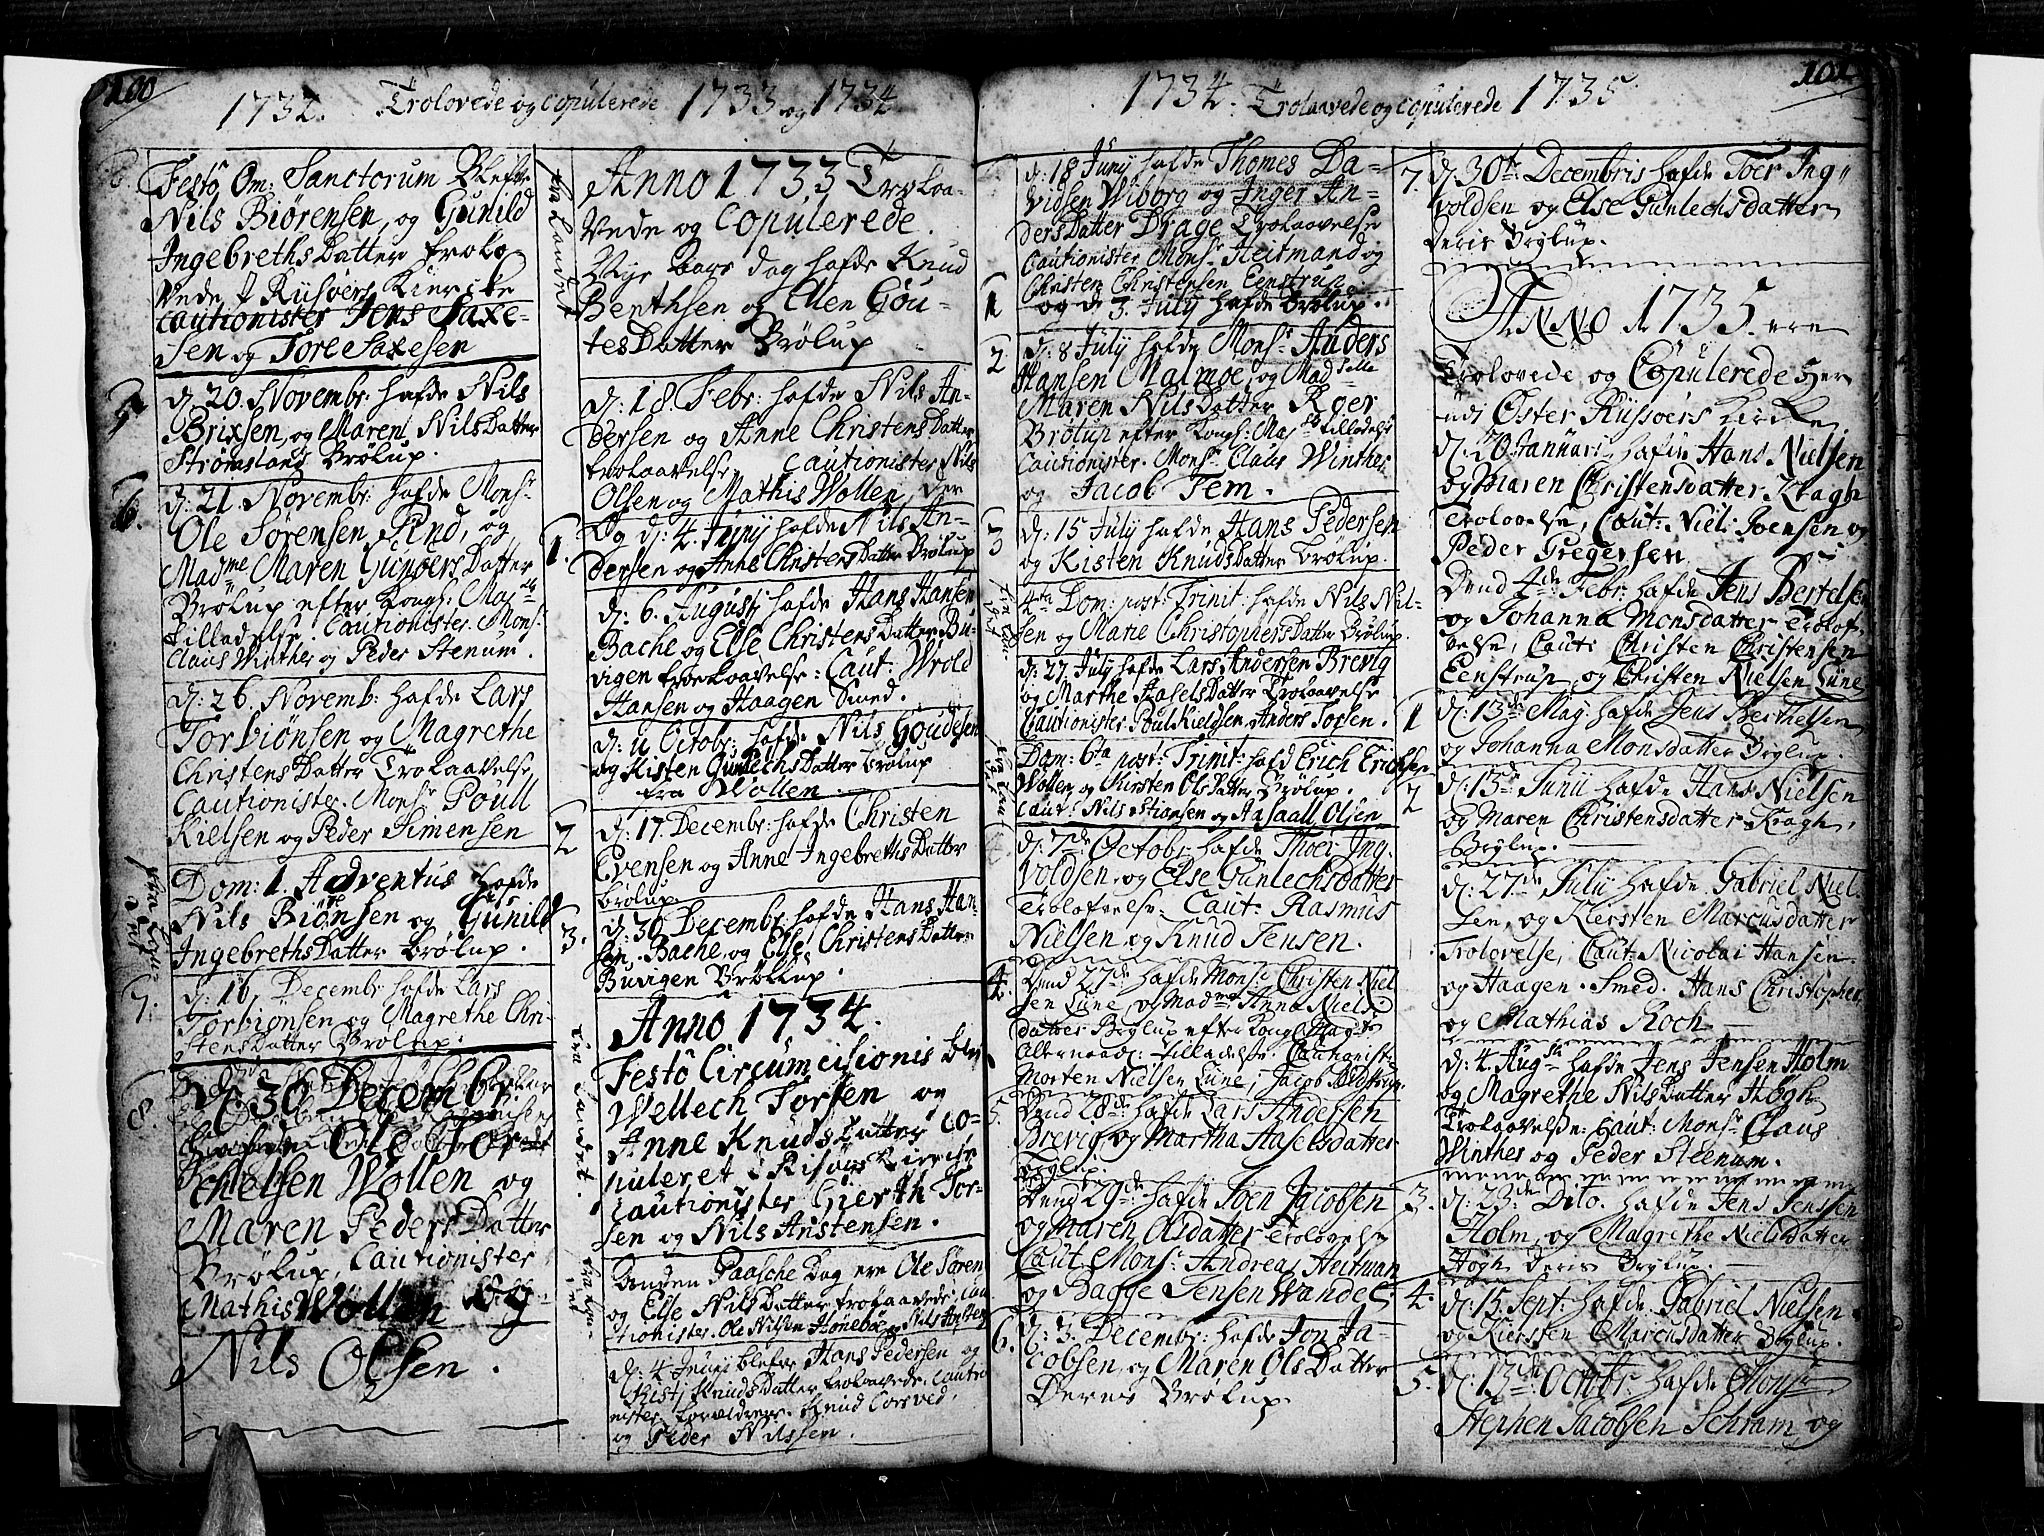 100
1732. Trolovede og Copulerede 1733 og 1734
Festo Om: Sanctorum Blefve
Nils Biörensen, og Gunild
Ingebreths Datter trolo
Vede I Riisöers Kiercke
Cautionister Jens Saxe-
sen og Tore Saxesen
5
d: 20. Novembr: hafde Nils
Brixsen, og Maren Nils Datter
Strömsland Brölup.
6.
d: 21. Novembr: hafde Monsr
Ole Sörensen Pind, og
Madme Maren Gunders Datter
Brölup efter Kongl: Mayts
Tilladelse. Cautionister. Mons:
Claus Winther og Peder Stenum.
d: 26. Novemb: hafde Lars
Torbiönsen og Magrethe
Christens Datter Trolaavelse,
Cautionister. Monsr Poull
Kielsen og Peder Simensen
Dom: 1. Adventus hafde
Nils Biönsen og Gunild
Ingebreths Datter Brölup.
7.
d: 16. Decembr: hafde Lars
Torbiönsen og Magrethe Chri-
stens Datter Brölup.
8.
d: 30 Decembr:
hafde Ole Tor
chelsen Wollen og
Maren Peders Datter
Brölup, Cautionister
Mathis Wollen og
Nils Olsen.
fra Landet
Anno 1733 Troloa-
Vede og Copulerede.
Nye Aars dag hafde Knud
Benthsen og Ellen Gou-
tes Datter Brölup
d: 18. Febr: hafde Nils An-
dersen og Anne Christens Datter
trolaavelse, Cautionister Nils
Olsen og Mathis Wollen,
1.
Og d: 4. Junij hafde Nils An-
dersen og Anne Christens Datter Brölup
d: 6. Augustj hafde Hans Hansen
Bache og Else Christens Datter Bu-
vigen trolaavelse: Caut: Wrold
Hansen og Haagen Smed.
d: 11 Octobr: hafde Nils Goudesen
og Kisten Gunlechs Datter Brölup
fra Wollen.
2
d: 17. Decembr: hafde Christen
Evensen og Anne Ingebreths Datter
Brölup.
3.
d: 30 Decembr: hafde Hans Han-
sen. Bache, og Else Christens Datter
Buvigen Bröllup.
Anno 1734.
fra Landet.
Festo Circumcisionis blev
Wellech Torsen og
Anne Knuds Datter co-
puleret i Risöers Kiercke
Cautionister Gierth Tor-
sen og Nils Anstensen.
Anden Paasche Dag ere Ole Sören
og Else Nils Datter trolaavede, Cau
tionister. Ole Nilsen Honeboe og Nils Anstens
d: 4 Junij blefve Hans Pedersen og
Kistj Knuds Datter trolaavede. Cautio
nister. Knud Torsved,
og Peder Nilssen.
101
1734. Trolaavede og Copulerede 1735
d: 18 Junij hafde Thomes Da-
vidsen Wiborg og Inger An-
ders Datter Drage Trolaavelse
Cautionister Monsr Heitmand og
Christen Christensen Eenstrup
1
og d 3. July hafde Brölup.
2
d: 8 July hafde Monsr. Anders
Hansen Malmöe, og Madselle
Maren Nils Datter Roer
Brölup efter Kongl: Mayts tilladelse
Cautionister. Monsr Claus Winther
og Jacob Tem.
3
d: 15 July hafde Hans Pedersen
og Kisten Knuds Datter Brölup.
4ta Dom: post: Trinit: hafde Nils Nil-
sen og Marie Christophers Datter Brölup.
d: 27. July hafde Lars Andersen Brevig
og Marthe Hasels Datter Trolaavelse
Cautionister Poul Kieldsen, Anders Torsen.
fra Landet
Dom: 6ta post: Trinit: hafd Erich Erichsen
Wollen og Kirsten Ols Datter Brölup.
Caut: Nils Stiansen og Aasaall Olsen
d: 7de Octobr: hafde Thoer Ing-
Voldsen, og Else Gunlechsdatter
Trolofvelse. Caut: Rasmus
Nielsen og Knud Jensen.
4.
Dend 27de hafde Mons: Christen Niel
sen Lune, og Madme Anna Niels
datter Brylup efter Kongl: Mayts
Allernaad: tilladelse. Cautionister
Morten Nielsen Lune,
5.
Dend 28de hafde Lars Andersen
Brevig og Martha Haselsdatter
Brylup.
Dend 29de: hafde Joen Jacobsen
og Maren Olsdatter Trolovelse
Caut. Mons: Andreas Heitman
og Bagge Jensen Wandel.
6.
d: 3. Decembr: hafde Jon Ja-
cobsen, og Maren Ols Datter
Deres Brölup.
7.
d: 30te Decembris hafde Toer Ing-
voldsen og Else Gunlechsdatter
Deris Brylup.
Anno 1735. ere
Trolovede og Copulerede Her
udi Öster Riisöers Kircke
d: 20 Januari hafde Hans Nielsen
og Maren Christensdatter Kragh
Trolovelse, Caut: Niel: Joensen og
Peder Gregersen
Dend 4de Febr: hafde Jens Bertelsen
og Johanna Monsdatter Trolof-
velse, Caut: Christen Christensen
Eenstrup, og Christen Nielsen Lune
1
d: 13de Maj hafde Jens Berthelsen
og Johanna Monsdatter Brylup.
2
d: 13de Junii hafde Hans Nielsen
og Maren Christensdatter Kragh,
Brylup.
d: 27de Julij hafde Gabriel Niel
sen, og Kiersten Marcusdatter
Trolovelse, Caut: Nicolai Hansen
og Haagen Smed. Hans Christopher
og Mathias Roch
d: 4. Augstj hafde Jens Jensen Holm
og Magrethe Nils Datter Högh
Trolaavelse: Caut: Monsr Claus
Winther og Peder Steenum.
3.
d: 23de Dito. hafde Jens Jenssen
Holm, og Magrethe Nielsdatter
Högh Deris Brylup.
4.
d: 15. Sept: hafde Gabriel Nielsen
og Kiersten Marcusdatter Brylup.
5.
d: 13de Octobr: hafde Monsr
Stephen Jacobsen Schram, og